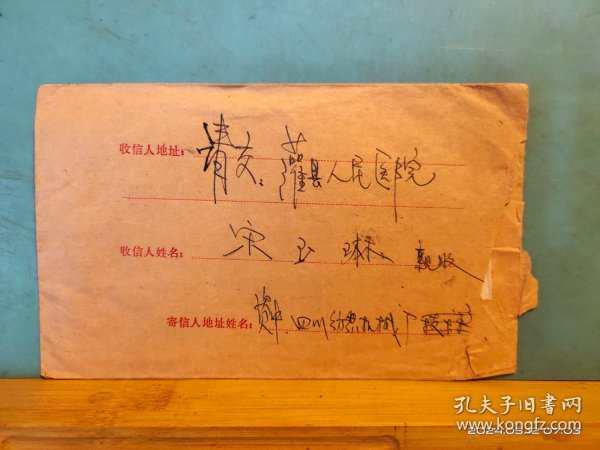 收信人地址：请交：灌县人民医院
收信人姓名：宋玉琳 亲收
寄信人地址姓名：四川纺织机械厂
孔夫子旧书网
www.kongfz.com